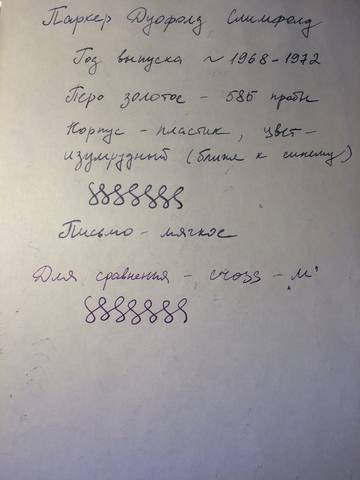 Паркер Дуофолд Слимфолд
Год выпуска ~ 1968-1972
Перо золотое - 585 пробы
Корпус - пластик, цвет -
изумрудный (ближе к синему)
Письмо - мягкое
Для сравнения - cross - "М"